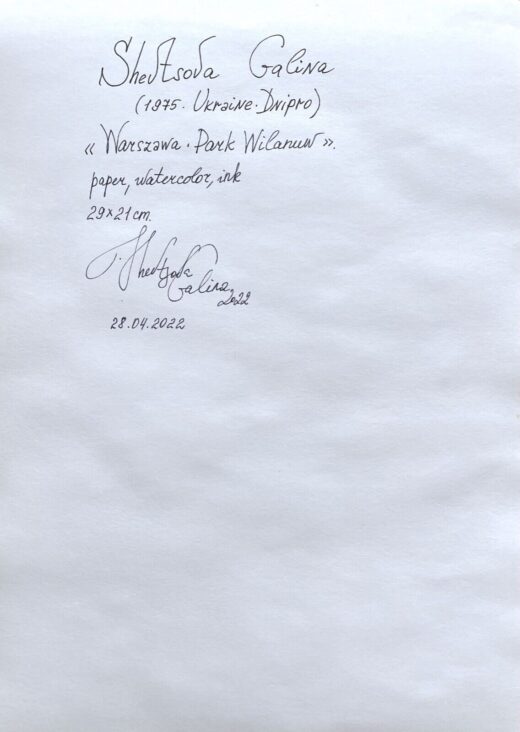 Shevtsova Galina
(1975. Ukraine. Dnipro)
« Warszawa. Park Wilanuw ».
paper, watercolor, ink
29×21 cm.
Shevtsova
Galina
2022
28.04.2022